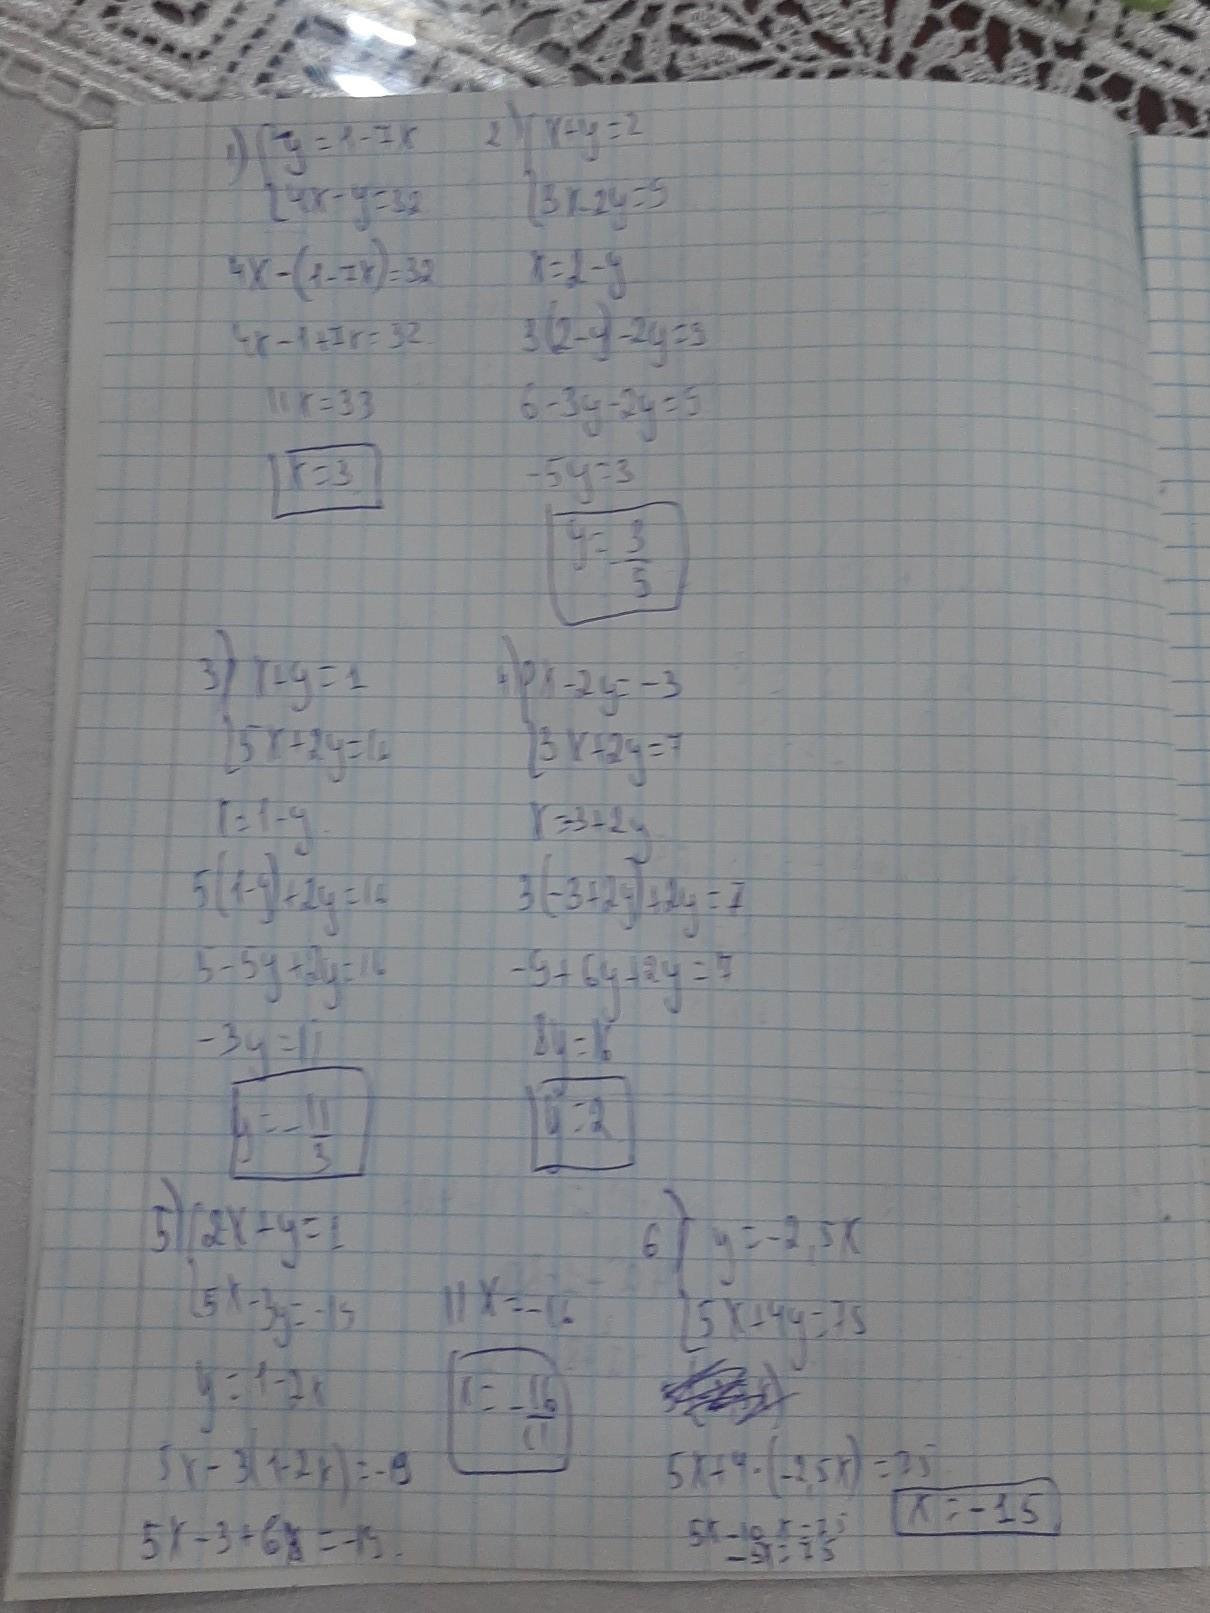 1) { y = 1 - 7x
4x - y = 32
4x - (1 - 7x) = 32
4x - 1 + 7x = 32
11x = 33
x = 3
2) { x + y = 2
3x - 2y = 5
x = 2 - y
3(2 - y) - 2y = 5
6 - 3y - 2y = 5
-5y = 3
y = -3/5
3) { x + y = 1
5x + 2y = 16
x = 1 - y
5(1 - y) + 2y = 16
5 - 5y + 2y = 16
-3y = 11
y = -11/3
4) { x - 2y = -3
3x + 2y = 7
x = -3 + 2y
3(-3 + 2y) + 2y = 7
-9 + 6y + 2y = 7
8y = 16
y = 2
5) { 2x + y = 1
5x - 3y = -15
y = 1 - 2x
5x - 3(1 - 2x) = -9
5x - 3 + 6x = -15.
11x = -16
x = -16/11
6) { y = -2,5x
5x + 4y = 75
5x + 4 · (-2,5x) = 75
5x - 10x = 75
-5x = 75
x = -15